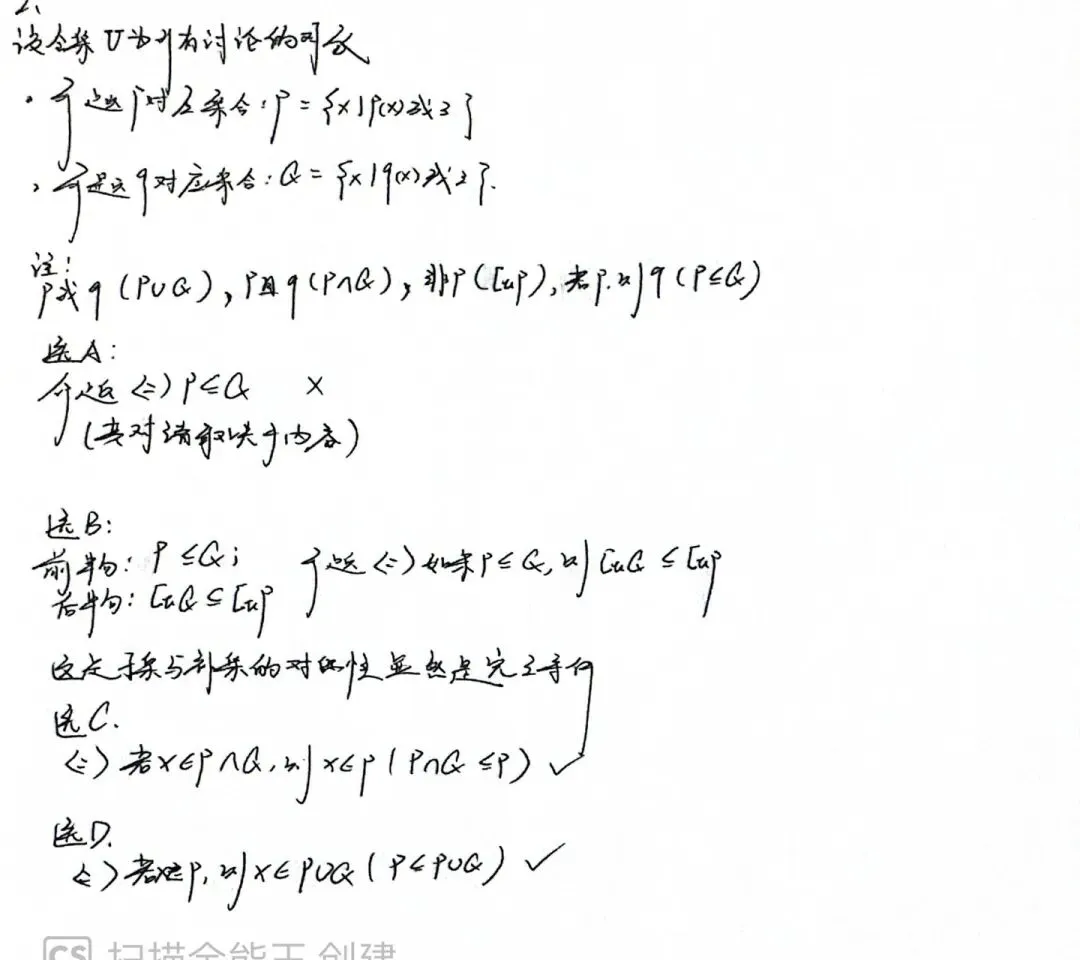 2、
设全集U为所有讨论的对象
· 命题p对应集合：P = {x|p(x)成立}
· 命题q对应集合：Q = {x|q(x)成立}.
注：
p或q (P∪Q), p且q (P∩Q), 非p (∁uP), 若p.则q (P⊆Q)
选A：
命题 <=> P⊆Q ×
(其对错取决于内容)
选B：
前半句：P⊆Q；命题 <=> 如果P⊆Q, 则∁uQ ⊆ ∁uP
后半句：∁uQ ⊆ ∁uP
这是子集与补集的对偶性显然是完全等价
选C.
<=> 若x∈P∩Q, 则x∈P (P∩Q ⊆P) ✓
选D.
<=> 若x∈P, 则x∈P∪Q (P⊆P∪Q) ✓
CS 扫描全能王 创建